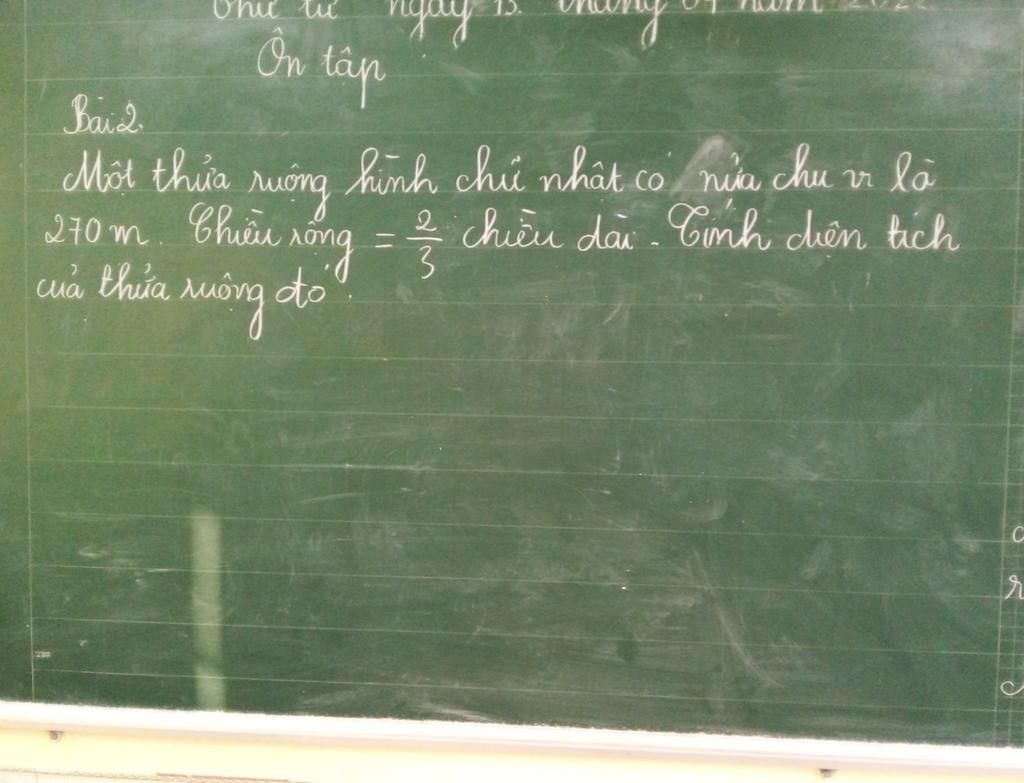 Thứ tư ngày 13 tháng 04 năm 2022
Ôn tập
Bài 2.
Một thửa ruộng hình chữ nhật có nửa chu vi là
270 m. Chiều rộng = 2/3 chiều dài. Tính diện tích
của thửa ruộng đó.